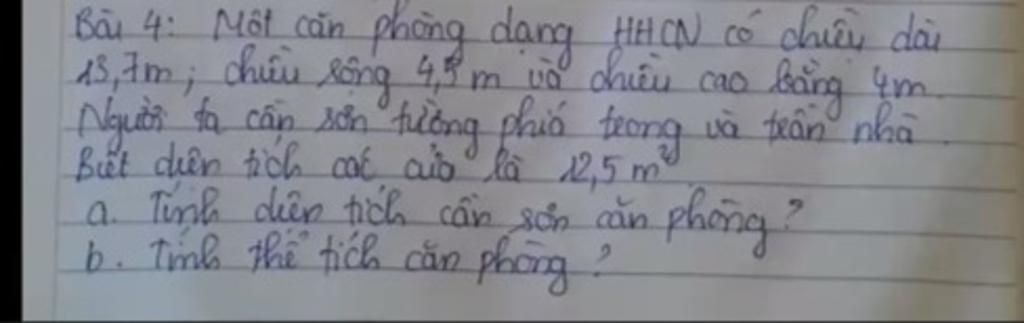 Bài 4: Một căn phòng dạng HHCN có chiều dài
13,7m; chiều rộng 4,5m và chiều cao bằng 4m.
Người ta cần sơn tường phía trong và trần nhà.
Biết diện tích các cửa là 12,5 m²
a. Tính diện tích cần sơn căn phòng?
b. Tính thể tích căn phòng?